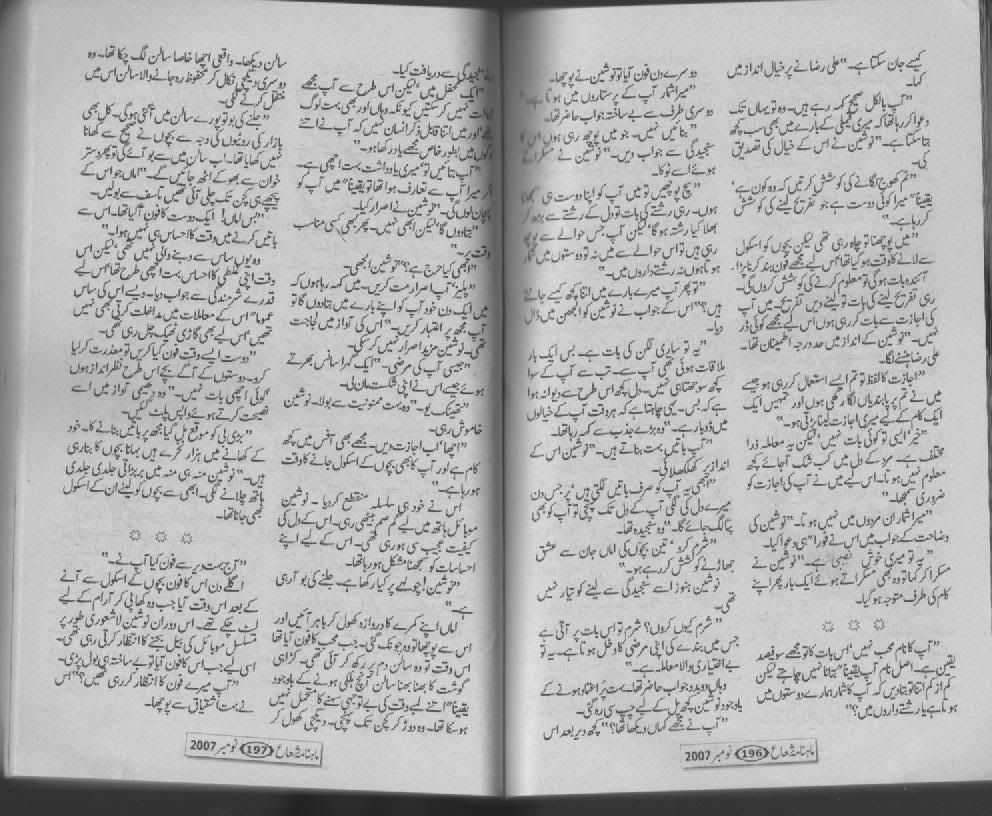 کیسے جان سکتا ہے۔“ علی رضا نے پر خیال انداز میں
کہا۔
”آپ بالکل صحیح کہہ رہے ہیں۔ وہ تو یہاں تک
دعوا کر رہا تھا کہ میری فیملی کے بارے میں بھی سب کچھ
بتا سکتا ہے۔“ نوشین نے اس کے خیال کی تصدیق
کی۔
”تم کھوج لگانے کی کوشش کرتیں کہ وہ کون ہے‘
یقینا“ میرا کوئی دوست ہے جو تفریح لینے کی کوشش
کر رہا ہے۔“
”میں پوچھنا تو چاہ رہی تھی لیکن بچوں کو اسکول
سے لانے کا وقت ہو گیا تھا‘ اس لیے مجھے فون بند کرنا پڑا۔
آئندہ بات ہوگی تو معلوم کرنے کی کوشش کروں گی۔
رہی تفریح لینے کی بات تو لینے دیں تفریح۔ میں آپ
کی اجازت سے بات کر رہی ہوں اس لیے مجھے کوئی ڈر
نہیں۔“ نوشین کے انداز میں حد درجہ اطمینان تھا۔
علی رضا ہنسنے لگا۔
”اجازت کا لفظ تو تم ایسے استعمال کر رہی ہو جیسے
میں نے تم پر پابندیاں لگا رکھی ہوں اور تمہیں ایک
ایک کام کے لیے میری اجازت لینا پڑتی ہو۔“
”خیر‘ ایسی تو کوئی بات نہیں‘ لیکن یہ معاملہ ذرا
مختلف ہے۔ مرد کے دل میں کب شک آجائے کچھ
معلوم نہیں ہوتا۔ اس لیے میں نے آپ کی اجازت کو
ضروری سمجھا۔“
”میرا شمار ان مردوں میں نہیں ہوتا۔“ نوشین کی
وضاحت کے جواب میں اس نے فورا“ ہی دعوا کیا۔
”یہ تو میری خوش نصیبی ہے۔“ نوشین نے
مسکرا کر کہا تو وہ بھی مسکراتے ہوئے ایک بار پھر اپنے
کام کی طرف متوجہ ہو گیا۔
”آپ کا نام محب نہیں‘ اس بات کا تو مجھے سو فیصد
یقین ہے۔ اصل نام آپ یقینا“ بتانا نہیں چاہتے لیکن
کم از کم اتنا تو بتا دیں کہ آپ کا شمار ہمارے دوستوں میں
ہوتا ہے یا رشتے داروں میں؟“
دوسرے دن فون آیا تو نوشین نے پوچھا۔
”میرا شمار آپ کے پرستاروں میں ہوتا ہے۔“
دوسری طرف سے بے ساختہ جواب حاضر تھا۔
”بنائیں نہیں۔ جو میں پوچھ رہی ہوں اس کا
سنجیدگی سے جواب دیں۔“ نوشین نے مسکراتے
ہوئے اسے ٹوکا۔
”سچ پوچھیں تو میں آپ کو اپنا دوست ہی
ہوں۔ رہی رشتے کی بات تو دل کے رشتے سے بڑھ کر
بھلا کیا رشتہ ہوگا‘ لیکن آپ جس حوالے سے پوچھ
رہی ہیں تو اس حوالے سے میں نہ تو دوستوں میں شمار
ہوتا ہوں نہ رشتے داروں میں۔“
”تو پھر آپ میرے بارے میں اتنا کچھ کیسے جانتے
ہیں؟“ اس کے جواب نے نوشین کو الجھن میں ڈال
دیا۔
”یہ تو ساری لگن کی بات ہے۔ بس ایک بار
ملاقات ہوئی تھی آپ سے۔ تب سے آپ کے سوا
کچھ سوجھتا ہی نہیں۔ دل کچھ اس طرح سے دیوانہ ہوا
ہے کہ بس۔ یہی چاہتا ہے کہ ہر وقت آپ کے خیالوں
میں ڈوبا رہے۔“ وہ بڑے جذب سے کہہ رہا تھا۔
”آپ باتیں بہت بناتے ہیں۔“ نوشین اس کے
انداز پر کھلکھلائی۔
”ابھی یہ آپ کو صرف باتیں لگتی ہیں‘ پر جس دن
میرے دل کی لگی آپ کے دل تک پہنچی تو آپ کو بھی
پتا لگ جائے گا۔“ وہ سنجیدہ تھا۔
”شرم کرو‘ تین بچوں کی اماں جان سے عشق
جھاڑنے کی کوشش کر رہے ہو۔“
نوشین ہنوز اسے سنجیدگی سے لینے کو تیار نہیں
تھی۔
”شرم کیوں کروں؟ شرم تو اس بات پر آتی ہے
جس میں بندے کی اپنی مرضی کا دخل ہوتا ہے۔ یہ تو
بے اختیاری والا معاملہ ہے۔“
وہاں دوبدو جواب حاضر تھا۔ بہت پر اعتماد ہونے کے
باوجود نوشین کچھ پل کے لیے چپ سی رہ گئی۔
”آپ نے مجھے کہاں دیکھا تھا؟“ کچھ دیر بعد اس
ماہنامہ شعاع 196 نومبر 2007
نے سنجیدگی سے دریافت کیا۔
”ایک محفل میں‘ لیکن اس طرح سے آپ مجھے
نہیں کر سکتیں کیونکہ وہاں اور بھی بہت لوگ
تھے‘ اور میں اتنا قابل ذکر انسان نہیں کہ آپ نے اتنے
لوگوں میں بطور خاص مجھے یاد رکھا ہو۔“
”آپ بتائیں تو‘ میری یادداشت بہت اچھی ہے۔
اگر میرا آپ سے تعارف ہوا تھا تو یقینا“ میں آپ کو
پہچان لوں گی۔“ نوشین نے اصرار کیا۔
”بتا دوں گا‘ لیکن ابھی نہیں۔ پھر کبھی کسی مناسب
وقت پر۔“
”ابھی کیا حرج ہے؟“ نوشین الجھی۔
”پلیز‘ آپ اصرار مت کریں۔ میں کہہ رہا ہوں کہ
میں ایک دن خود آپ کو اپنے بارے میں بتا دوں گا تو
آپ مجھ پر اعتبار کریں۔“ اس کی آواز میں لجاجت
تھی۔ نوشین مزید اصرار نہیں کر سکی۔
”جیسی آپ کی مرضی۔“ ایک گہرا سانس بھرتے
ہوئے جیسے اس نے اپنی شکست مان لی۔
”تھینک یو۔“ وہ بہت ممنونیت سے بولا۔ نوشین
خاموش رہی۔
”اچھا‘ اب اجازت دیں۔ مجھے بھی آفس میں کچھ
کام ہے اور آپ کا بھی بچوں کے اسکول جانے کا وقت
ہو رہا ہے۔“
اس نے خود ہی سلسلہ منقطع کر دیا۔ نوشین
موبائل ہاتھ میں لیے گم صم بیٹھی رہی۔ اس کے دل کی
کیفیت عجیب سی ہو رہی تھی۔ اس کے لیے اپنے
احساسات کو سمجھنا مشکل ہو رہا تھا۔
”نوشین! چولہے پر کیا رکھا ہے۔ جلنے کی بو آ رہی
ہے۔“
اماں اپنے کمرے کا دروازہ کھول کر باہر آئیں اور
اس سے پوچھا تو وہ چونک گئی۔ جب محب کا فون آیا تھا
اس وقت تو وہ سالن دم پر رکھ کر آئی تھی۔ کڑاہی
گوشت کا بھنا بھنا سالن آنچ ہلکی ہونے کے باوجود
یقینا“ اتنے لمبے وقت کی بے توجہی سہنے کا متحمل نہیں
ہو سکا تھا۔ وہ دوڑ کر کچن تک پہنچی۔ دیگچی کھول کر
سالن دیکھا۔ واقعی اچھا خاصا سالن لگ چکا تھا۔ وہ
دوسری دیگچی نکال کر محفوظ رہ جانے والا سالن اس میں
منتقل کرنے لگی۔
”جلنے کی بو تو پورے سالن میں آگئی ہوگی۔ کل بھی
بازار کی روٹیوں کی وجہ سے بچوں نے صحیح سے کھانا
نہیں کھایا تھا۔ اب سالن میں سے بو آئے گی تو پھر دستر
خوان سے بھوکے اٹھ جائیں گے۔“ اماں جو اس کے
پیچھے ہی کچن تک چلی آئی تھیں تاسف سے بولیں۔
”بس اماں! ایک دوست کا فون آگیا تھا۔ اس سے
باتیں کرنے میں وقت کا احساس ہی نہیں ہوا۔“
وہ یوں ساس سے دبنے والی نہیں تھی‘ لیکن اس
وقت اپنی غلطی کا احساس بہت اچھی طرح تھا‘ اس لیے
قدرے شرمندگی سے جواب دیا۔ ویسے اس کی ساس
عموما“ اس کے معاملات میں مداخلت کرتی بھی نہیں
تھیں‘ اس لیے بھی گاڑی ٹھیک چل رہی تھی۔
”دوست ایسے وقت فون کیا کریں تو معذرت کر لیا
کرو۔ دوستوں کے آگے بچے اس طرح نظر انداز ہوں
کوئی اچھی بات نہیں۔“ وہ دھیمی آواز میں اسے
نصیحت کرتے ہوئے واپس پلٹ گئیں۔
”بڑی بی کو موقع مل گیا مجھ پر باتیں بنانے کا۔ خود
کے کھانے میں ہزار نخرے ہیں‘ بہانا بچوں کا بنا رہی
ہیں۔“ نوشین منہ ہی منہ میں بڑبڑاتی جلدی جلدی
ہاتھ چلانے لگی۔ ابھی سے بچوں کو لینے ان کے اسکول
بھی جانا تھا۔
”آج بہت دیر سے فون کیا آپ نے۔“
اگلے دن اس کا فون بچوں کے اسکول سے آنے
کے بعد اس وقت آیا جب وہ کھا پی کر آرام کے لیے
لیٹ چکے تھے۔ اس دوران نوشین لاشعوری طور پر
مسلسل موبائل کی بیل بجنے کا انتظار کرتی رہی تھی۔
اسی لیے جب اس کا فون آیا تو بے ساختہ ہی بول پڑی۔
”آپ میرے فون کا انتظار کر رہی تھیں؟“ اس
نے بہت اشتیاق سے پوچھا۔
ماہنامہ شعاع 197 نومبر 2007